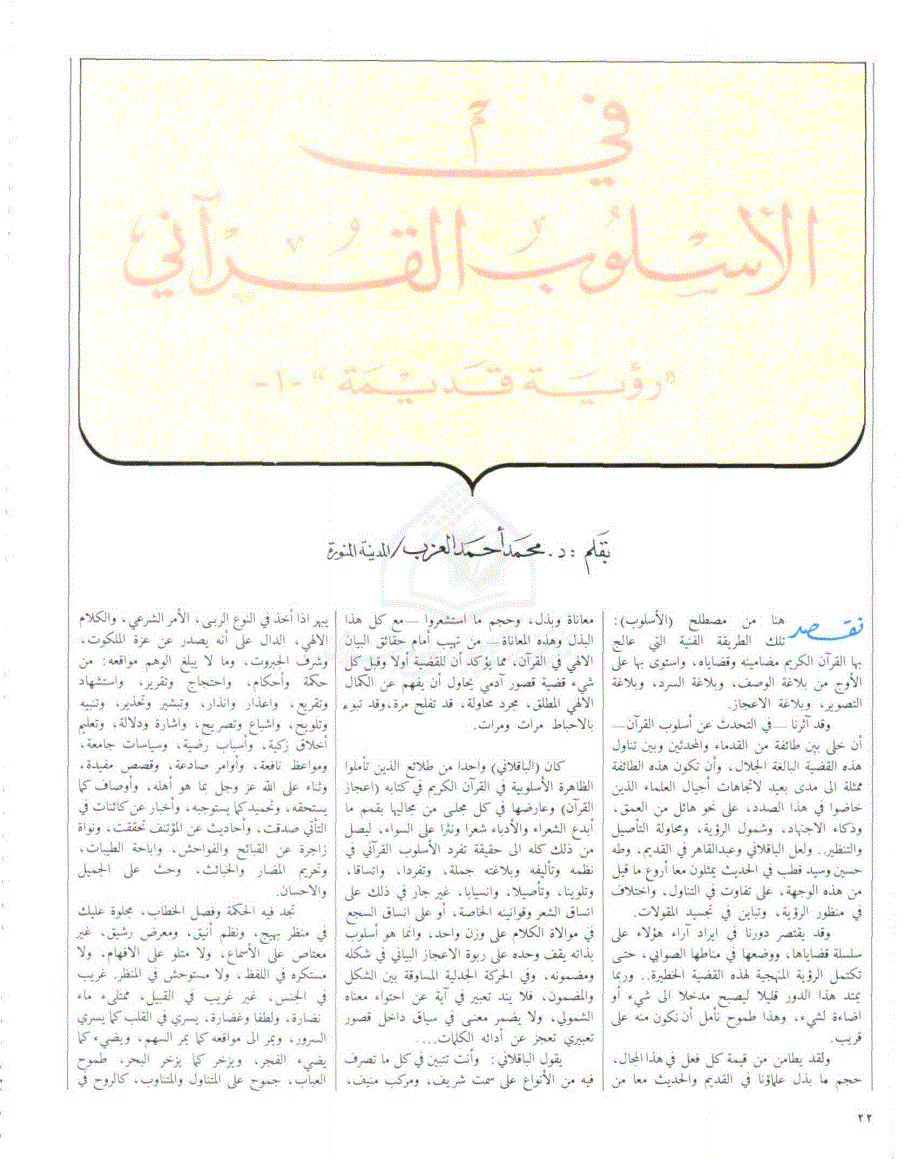 في
الأسلوب القرآني
«رؤية قديمة» -١-
بقلم : د. محمد أحمد العزب / المدينة المنورة
نقصد هنا من مصطلح (الأسلوب):
تلك الطريقة الفنية التي عالج
بها القرآن الكريم مضامينه وقضاياه، واستوى بها على
الأوج من بلاغة الوصف، وبلاغة السرد، وبلاغة
التصوير، وبلاغة الاعجاز.
وقد آثرنا — في التحدث عن أسلوب القرآن —
أن خلى بين طائفة من القدماء والمحدثين وبين تناول
هذه القضية البالغة الجلال، وأن تكون هذه الطائفة
ممثلة الى مدى بعيد لاتجاهات أجيال العلماء الذين
خاضوا في هذا الصدد، على نحو هائل من العمق،
وذكاء الاجتهاد، وشمول الرؤية، ومحاولة التأصيل
والتنظير.. ولعل الباقلاني وعبدالقاهر في القديم، وطه
حسين وسيد قطب في الحديث يمثلون معا أروع ما قيل
من هذه الوجهة، على تفاوت في التناول، واختلاف
في منظور الرؤية، وتباين في تجسيد المقولات.
وقد يقتصر دورنا في ايراد آراء هؤلاء على
سلسلة قضاياها، ووضعها في مناطها الصوابي، حتى
تكتمل الرؤية المنهجية لهذه القضية الخطيرة.. وربما
يمتد هذا الدور قليلا ليصبح مدخلا الى شيء أو
اضاءة لشيء، وهذا طموح نأمل أن نكون منه على
قريب.
ولقد يطامن من قيمة كل فعل في هذا المجال،
حجم ما بذل علماؤنا في القديم والحديث معا من
معاناة وبذل، وحجم ما استشعروا — مع كل هذا
البذل وهذه المعاناة — من تهيب أمام حقائق البيان
الالهي في القرآن، مما يؤكد أن للقضية أولا وقبل كل
شيء قضية قصور آدمي يحاول أن يفهم عن الكمال
الالهي المطلق، مجرد محاولة، قد تفلح مرة، وقد تبوء
بالاحباط مرات ومرات.
كان (الباقلاني) واحدا من طلائع الذين تأملوا
الظاهرة الأسلوبية في القرآن الكريم في كتابه (اعجاز
القرآن) وعارضها في كل مجلى من مجاليها بقمم ما
أبدع الشعراء والأدباء شعرا ونثرا على السواء، ليصل
من ذلك كله الى حقيقة تفرد الأسلوب القرآني في
نظمه وتأليفه وبلاغته جملة، وتفردا، واتساقا،
وتلوينا، وتأصيلا، وانسيابا، غير جار في ذلك على
اتساق الشعر وقوانينه الخاصة، أو على اتساق السجع
في موالاة الكلام على وزن واحد، وانما هو أسلوب
بذاته يقف وحده على ربوة الاعجاز البياني في شكله
ومضمونه، وفي الحركة الجدلية المساوقة بين الشكل
والمضمون، فلا يند تعبير في آية عن احتواء معناه
الشمولي، ولا يضمر معنى في سياق داخل قصور
تعبيري تعجز عن أدائه الكلمات....
يقول الباقلاني: وأنت تتبين في كل ما تصرف
فيه من الأنواع على سمت شريف، ومركب منيف،
يبهر اذا أخذ في النوع الربى، الأمر الشرعي، والكلام
الالهي، الدال على أنه يصدر عن عزة الملكوت،
وشرف الجبروت، وما لا يبلغ الوهم مواقعه: من
حكمة وأحكام، واحتجاج وتقرير، واستشهاد
وتقريع، واعذار وانذار، وتبشير وتحذير، وتنبيه
وتلويح، واشباع وتصريح، واشارة ودلالة، وتعليم
أخلاق زكية، وأسباب رضية، وسياسات جامعة،
ومواعظ نافعة، وأوامر صادعة، وقصص مفيدة،
وثناء على الله عز وجل بما هو أهله، وأوصاف كما
يستحقه، وتحميد كما يستوجبه، وأخبار عن كائنات في
التأتي صدقت، وأحاديث عن المؤتنف تحققت، ونواة
زاجرة عن القبائح والفواحش، واباحة الطيبات،
وتحريم المضار والخبائث، وحث على الجميل
والاحسان.
تجد فيه الحكمة وفصل الخطاب، مجلوة عليك
في منظر بهيج، ونظم أنيق، ومعرض رشيق، غير
معتاص على الأسماع، ولا متلو على الافهام، ولا
مستكره في اللفظ، ولا مستوحش في المنظر. غريب
في الجنس، غير غريب في القبيل، ممتلىء ماء
نضارة، ولطفا وغضارة، يسري في القلب كما يسري
السرور، ويمر الى مواقعه كما يمر السهم، ويضيء كما
يضيء الفجر، ويزخر كما يزخر البحر، طموح
العباب، جموح على المتناول والمتناوب، كالروح في
٢٢